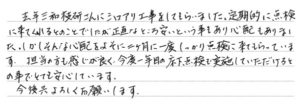 去年三和技研さんにシロアリ工事をしてもらいました。定期的に点検
に来てくれるとのことでしたが正直なところ安いという事もあり心配もありまし
た。しかしそんな心配をよそに一ヶ月に一度しっかり点検に来てもらっていま
す。担当の方も感じが良く、今後一年目の床下点検も実施していただけるとの
事でとても安心しています。
今後共よろしくお願いします。